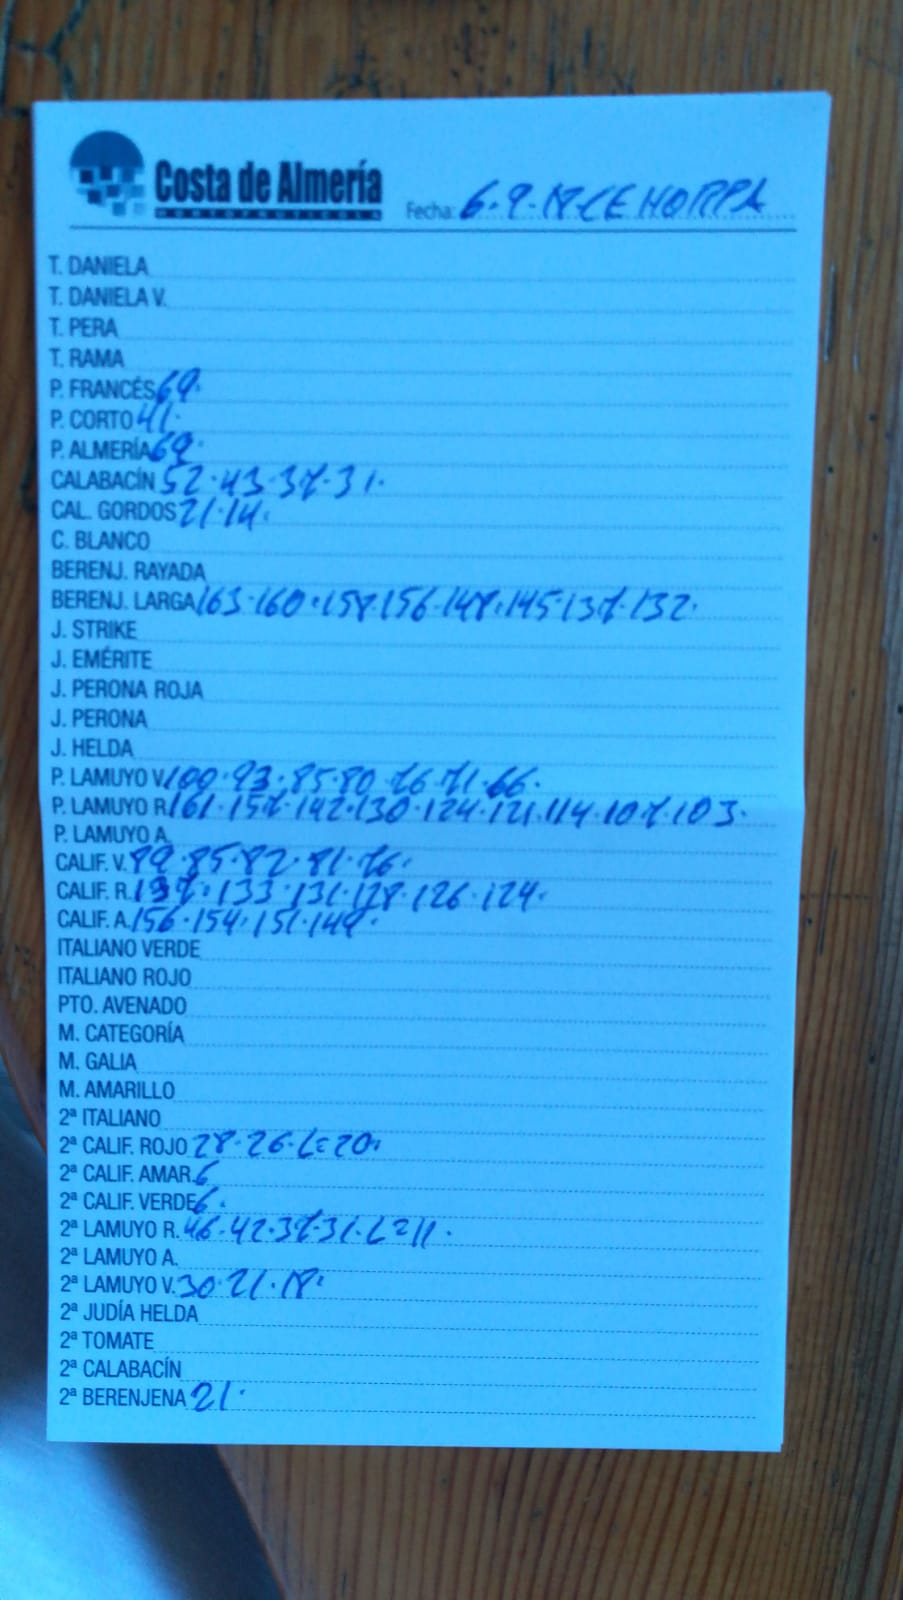 Costa de Almería
HORTOFRUTICOLA
Fecha: 6.9.18 CEHORPA
T. DANIELA
T. DANIELA V.
T. PERA
T. RAMA
P. FRANCÉS 69.
P. CORTO 41.
P. ALMERÍA 69.
CALABACÍN 52.43.37.31.
CAL. GORDOS 21.14.
C. BLANCO
BERENJ. RAYADA
BERENJ. LARGA 163.160.158.156.148.145.137.132.
J. STRIKE
J. EMÉRITE
J. PERONA ROJA
J. PERONA
J. HELDA
P. LAMUYO V. 100.93.85.80.76.71.66.
P. LAMUYO R. 161.157.142.130.124.121.114.107.103.
P. LAMUYO A.
CALIF. V. 89.85.82.81.76.
CALIF. R. 137.133.131.128.126.124.
CALIF. A. 156.154.151.149.
ITALIANO VERDE
ITALIANO ROJO
PTO. AVENADO
M. CATEGORÍA
M. GALIA
M. AMARILLO
2ª ITALIANO
2ª CALIF. ROJO 28.26. 20.
2ª CALIF. AMAR. 6
2ª CALIF. VERDE 6.
2ª LAMUYO R. 46.42.37.31. 11.
2ª LAMUYO A.
2ª LAMUYO V. 30.21.18.
2ª JUDÍA HELDA
2ª TOMATE
2ª CALABACÍN
2ª BERENJENA 21.